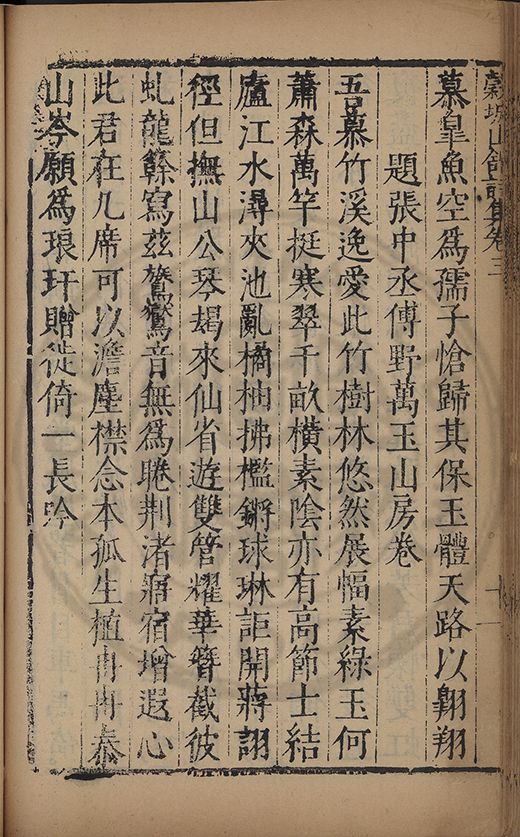 穀城山館詩集卷三
慕皐魚空爲孺子愴歸其保玉體天路以翺翔
題張中丞傅野萬玉山房卷
吾慕竹溪逸愛此竹樹林悠然展幅素綠玉何
蕭森萬竿挺寒翠千畝橫素陰亦有高節士結
廬江水潯夾池亂橘柚拂檻鏘球琳詎開蔣詡
徑但撫山公琴朅來仙省遊雙管耀華簪截彼
虬龍餘寫茲鸑鷟音無爲睠荆渚寤宿增遐心
此君在几席可以澹塵襟念本孤生植冉冉泰
山岑願爲琅玕贈徙倚一長吟